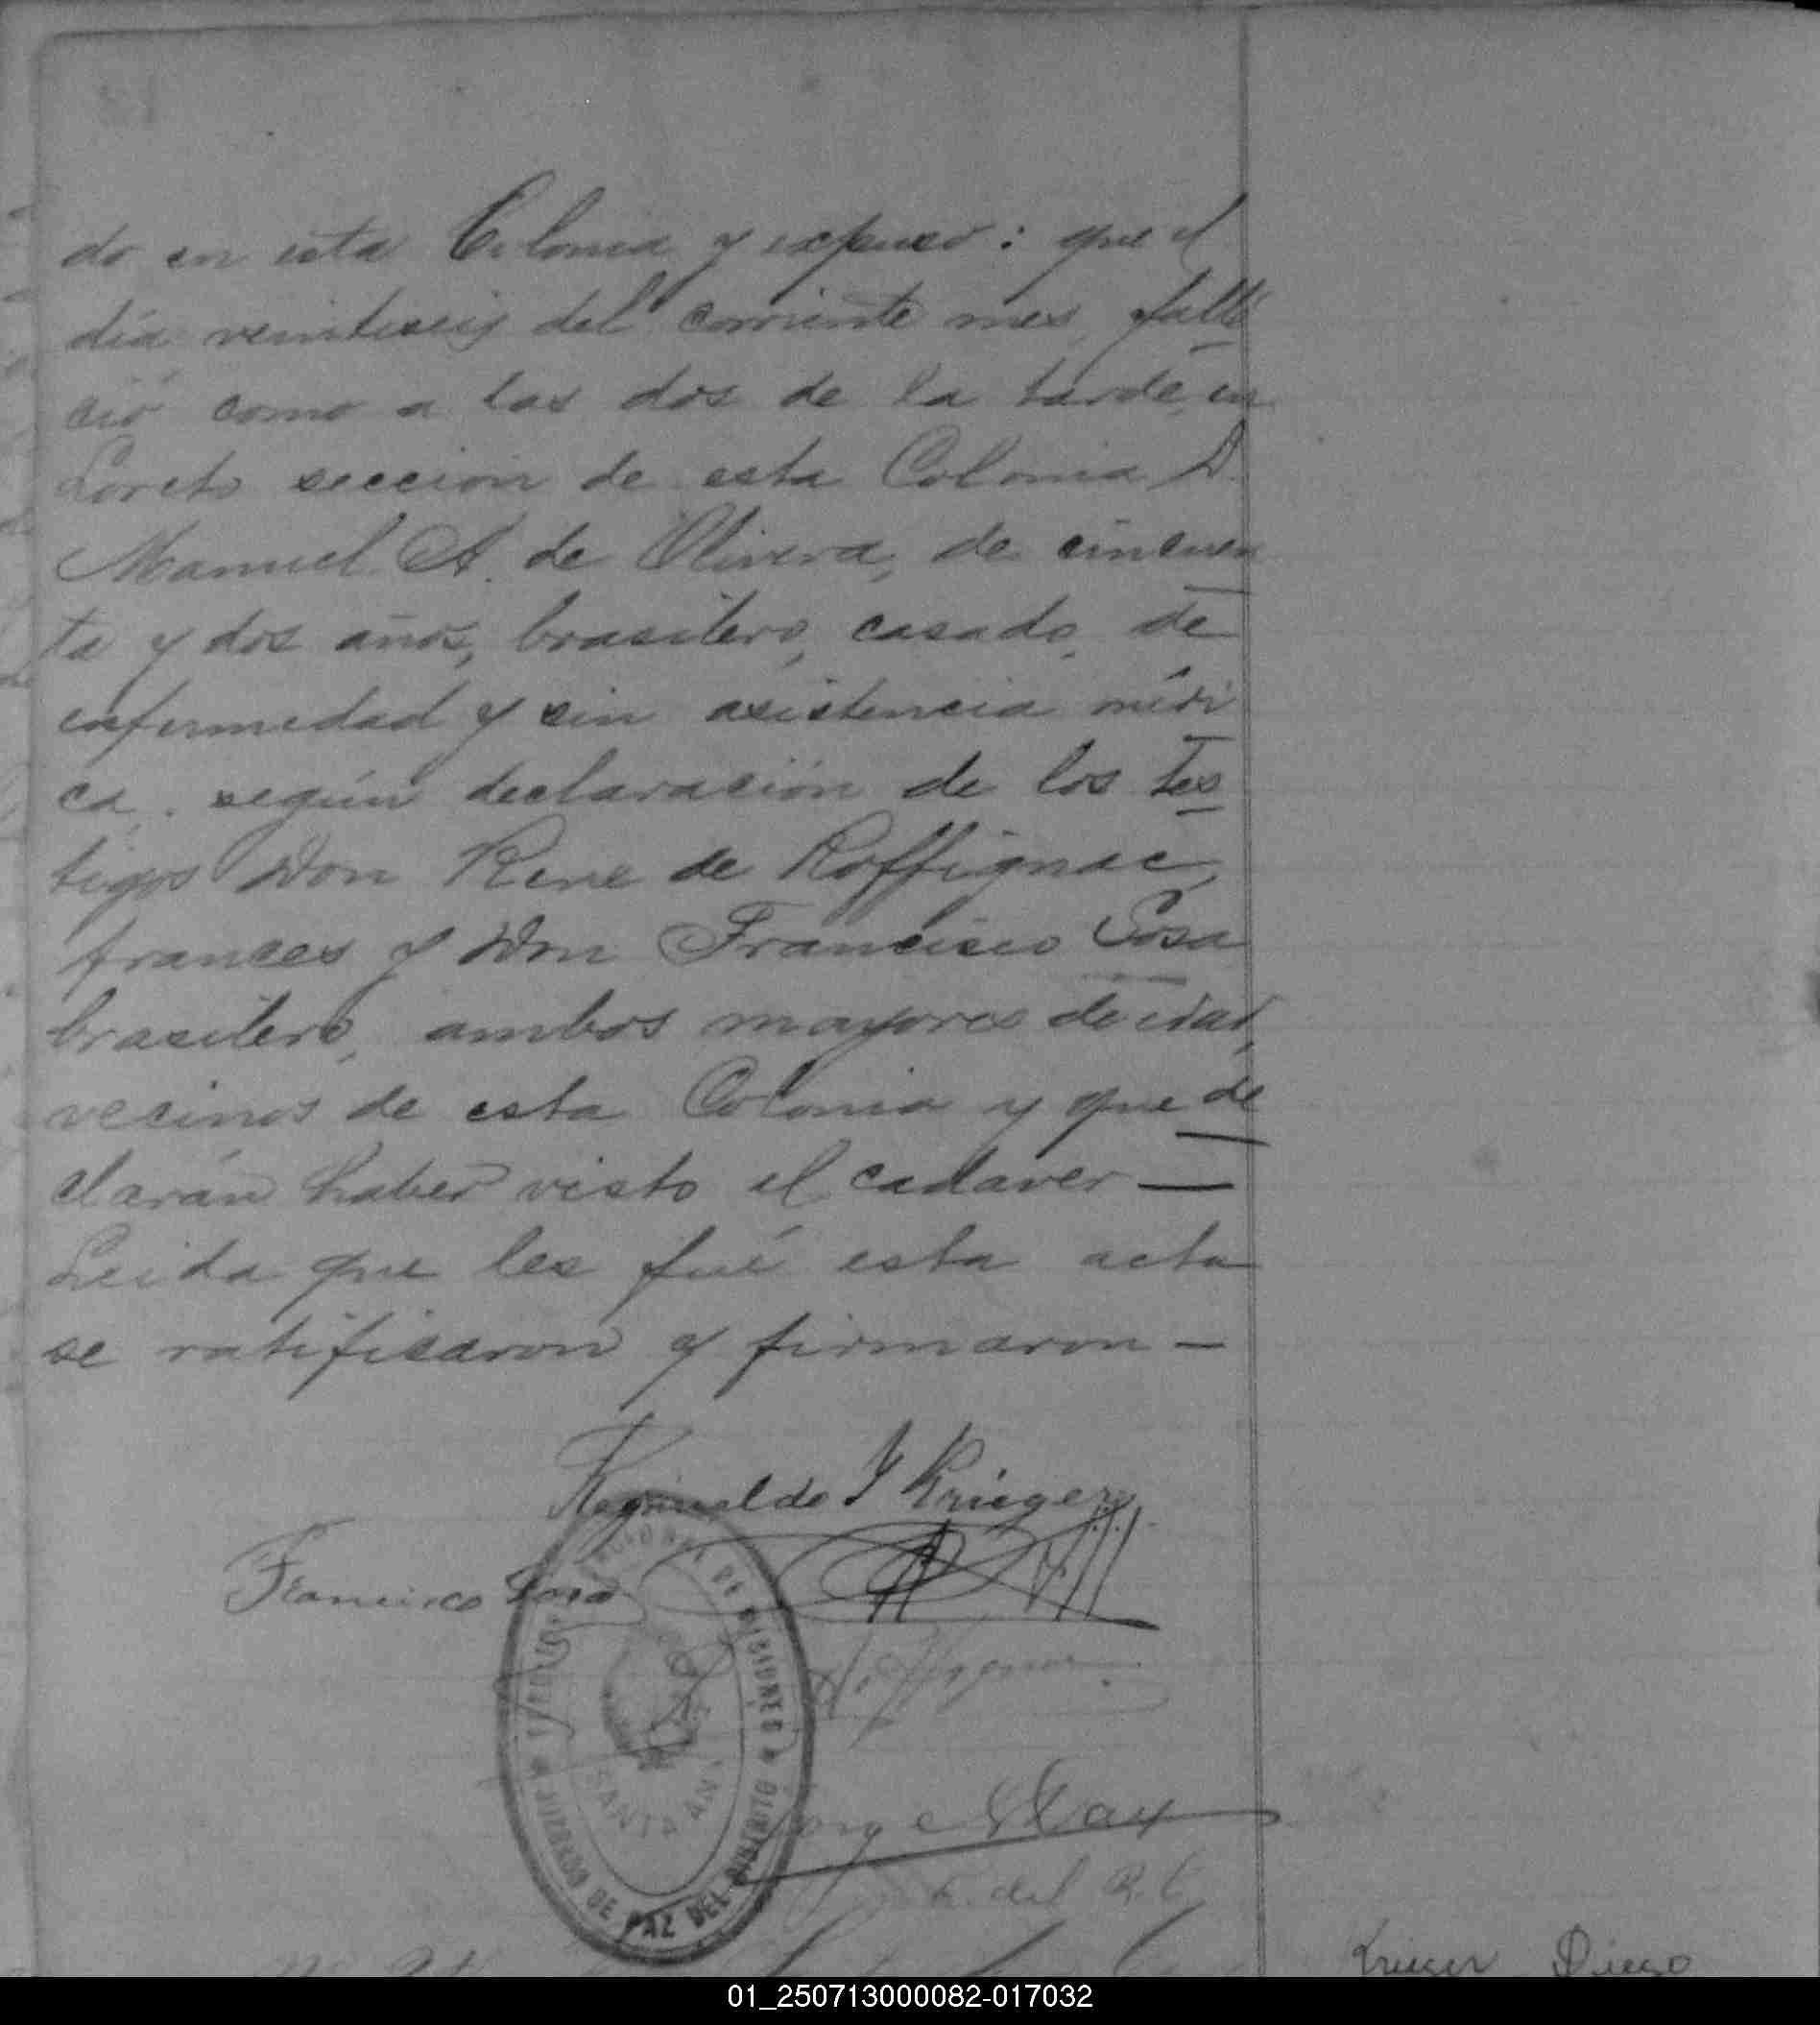 do en esta Colonia y expuso: que el
dia veintiseis del corriente mes, falle
ció como a las dos de la tarde, en
Loreto seccion de esta Colonia D.
Manuel A. de Olivera, de cincuen
ta y dos años, brasilero, casado, de
enfermedad y sin asistencia médi
ca. según declaración de los tes
tigos Don Rene de Roffignac,
frances y Don Francisco Sosa
brasilero, ambos mayores de edad,
vecinos de esta Colonia y que de
clarán haber visto el cadaver —
Leida que les fué esta acta
se ratificaron y firmaron —
Reginaldo J Krieger
Francisco Sosa
JUZGADO DE PAZ DEL DISTRITO
DE MISIONES
SANTA ANA
del R. C.
Krieger Diego
01_250713000082-017032